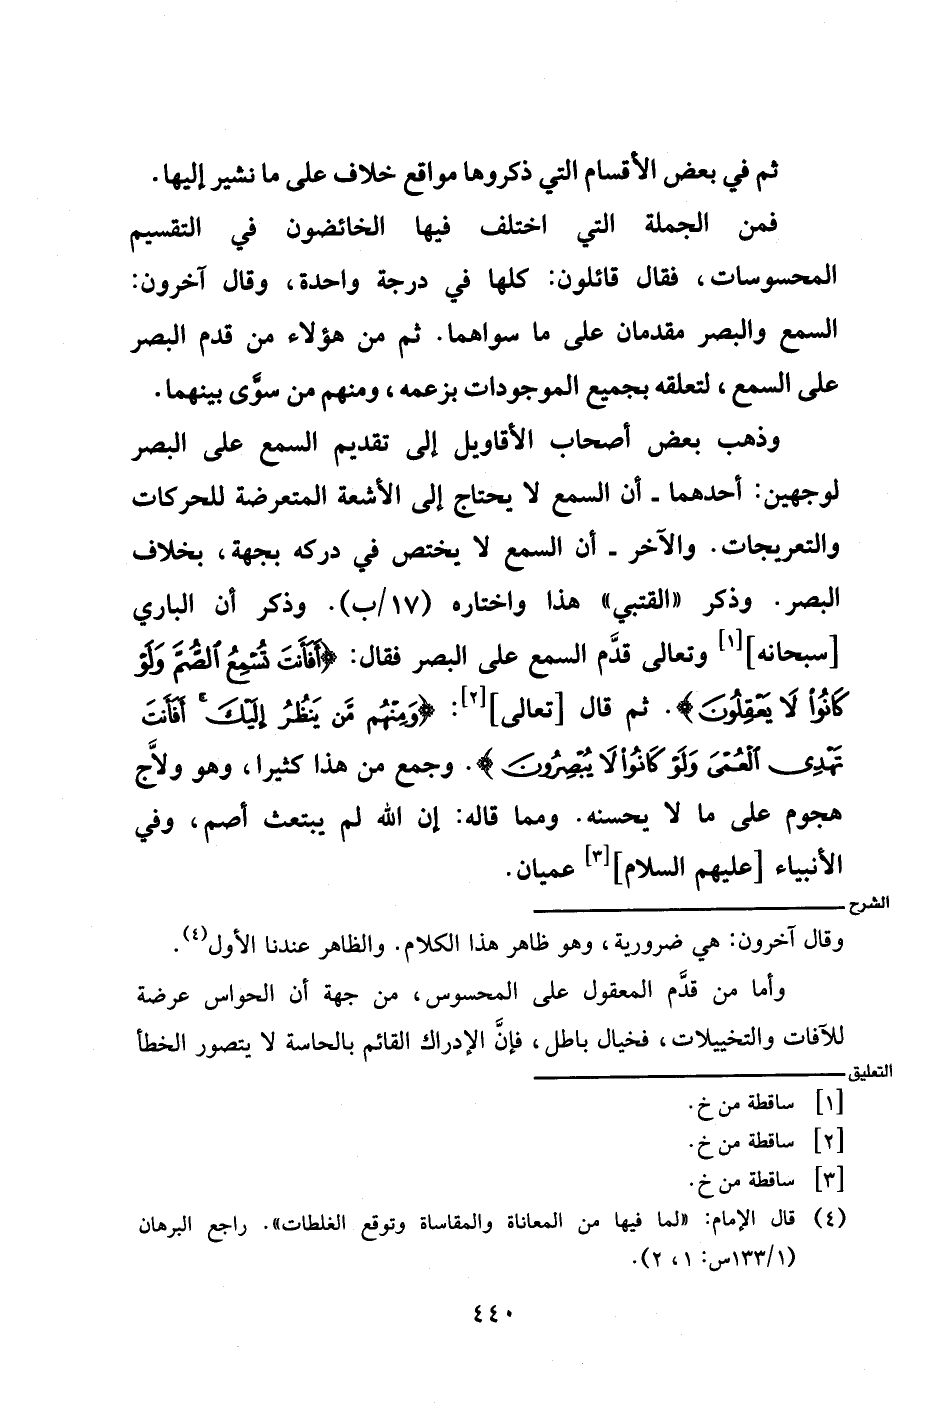 ثم في بعض الأقسام التي ذكروها مواقع خلاف على ما نشير إليها.
فمن الجملة التي اختلف فيها الخائضون في التقسيم
المحسوسات، فقال قائلون: كلها في درجة واحدة، وقال آخرون:
السمع والبصر مقدمان على ما سواهما. ثم من هؤلاء من قدم البصر
على السمع، لتعلقه بجميع الموجودات بزعمه، ومنهم من سوَّى بينهما.
وذهب بعض أصحاب الأقاويل إلى تقديم السمع على البصر
لوجهين: أحدهما ـ أن السمع لا يحتاج إلى الأشعة المتعرضة للحركات
والتعريجات. والآخر ـ أن السمع لا يختص في دركه بجهة، بخلاف
البصر. وذكر «القتبي» هذا واختاره (١٧/ب). وذكر أن الباري
[سبحانه][١] وتعالى قدَّم السمع على البصر فقال: ﴿أَفَأَنتَ تُسْمِعُ ٱلصُّمَّ وَلَوْ
كَانُوا۟ لَا يَعْقِلُونَ﴾. ثم قال [تعالى][٢]: ﴿وَمِنْهُم مَّن يَنظُرُ إِلَيْكَ ۚ أَفَأَنتَ
تَهْدِى ٱلْعُمْىَ وَلَوْ كَانُوا۟ لَا يُبْصِرُونَ﴾. وجمع من هذا كثيرا، وهو ولاَّج
هجوم على ما لا يحسنه. ومما قاله: إن الله لم يبتعث أصم، وفي
الأنبياء [عليهم السلام][٣] عميان.
الشرح
وقال آخرون: هي ضرورية، وهو ظاهر هذا الكلام. والظاهر عندنا الأول(٤).
وأما من قدَّم المعقول على المحسوس، من جهة أن الحواس عرضة
للآفات والتخييلات، فخيال باطل، فإنَّ الإدراك القائم بالحاسة لا يتصور الخطأ
التعليق
[١] ساقطة من خ.
[٢] ساقطة من خ.
[٣] ساقطة من خ.
(٤) قال الإمام: «لما فيها من المعاناة والمقاساة وتوقع الغلطات». راجع البرهان
(١/١٣٣س: ١، ٢).
٤٤٠